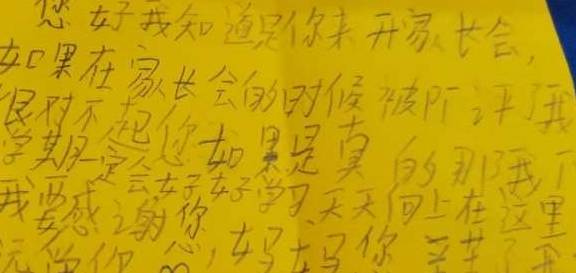 您好我知道是你来开家长会,
如果在家长会的时候被所评了我
很对不起您如果是真的那我下
学期一定会好好学习天天向上在这里
我要感谢您,妈妈你辛苦了我